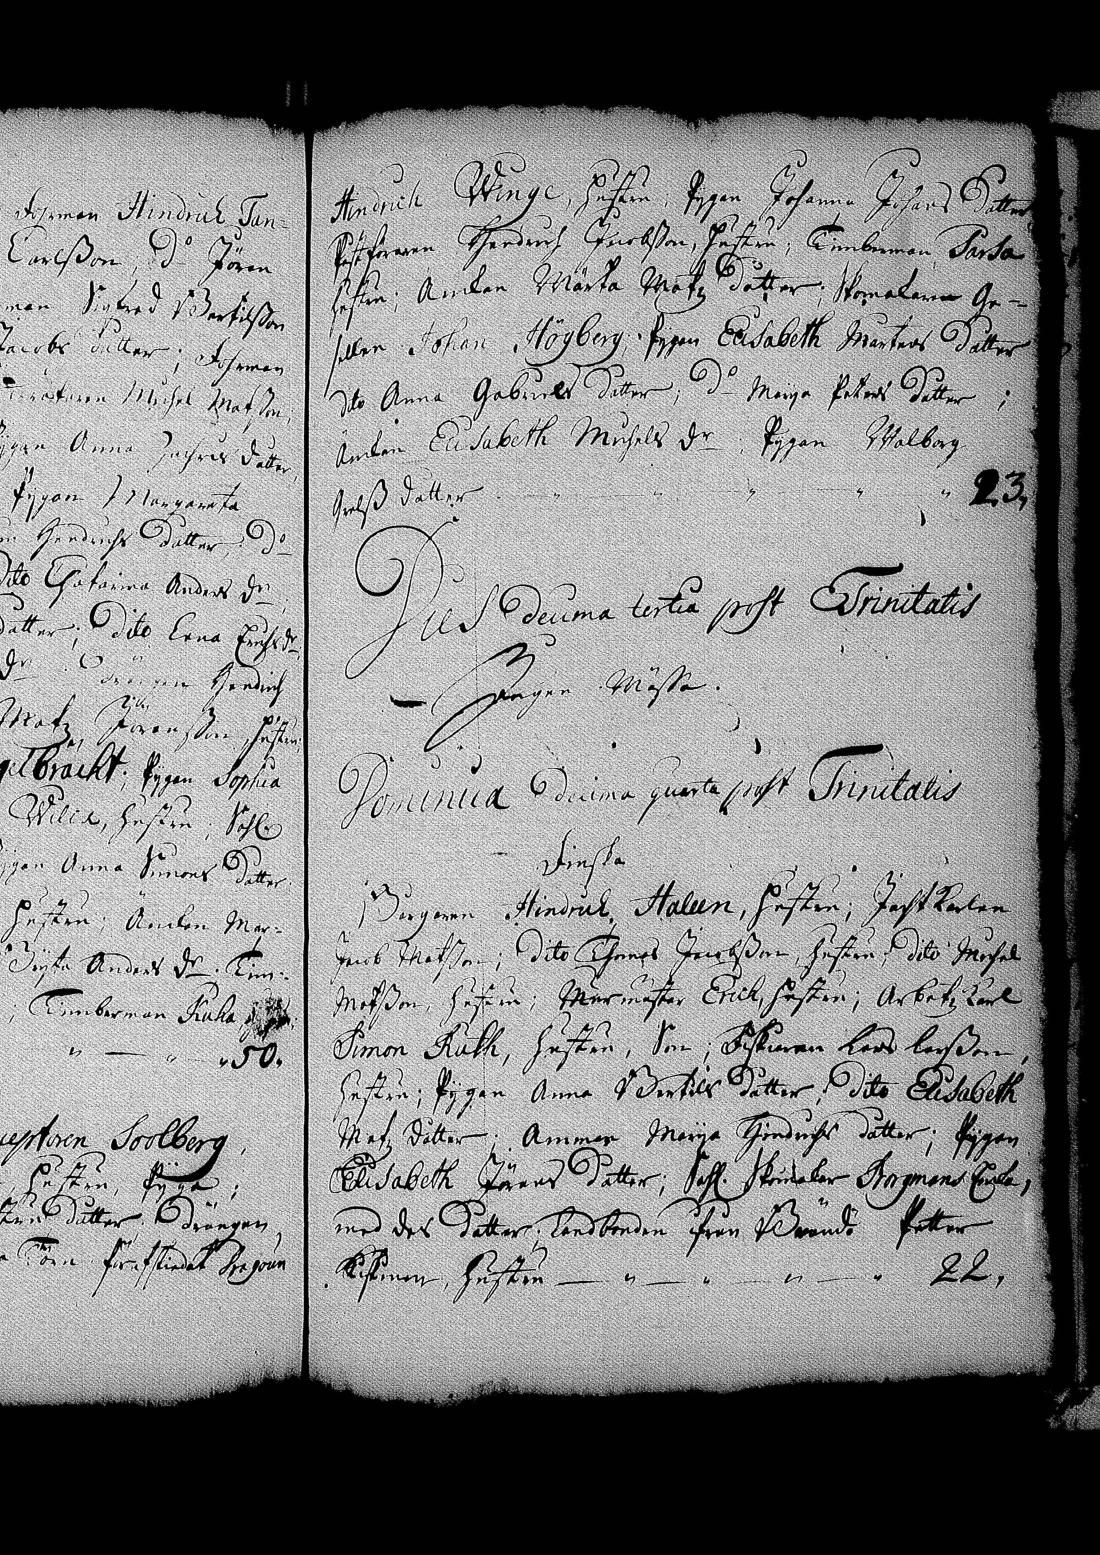 Fohrman Hindrich Tan-
Carlßon, do Jören
man Sigfred Bertilsson
Jacobs Datter; Fohrman
Michel Matßon,
Pygan Anna Zachris datter,
Pygan Margareta
Hendrichs datter, do
Dito Chatarina Anders dr,
datter; Dito Lena Erichs dr,
dr. Drängen Hendrich
Matz Jörensson, hustru;
gelbracht; Pygan Sophia
Willa, hustru; Sahl.
Pygan Anna Simons datter.
hustru; Änkan Mar-
Anders dr. Tim-
Timberman Kuha
50.
ceptoren Soolberg,
hustru, Pyga;
datter, Drängen,
Törn förafskiedat Dragoun
Hindrich Winge, hustru, Pygan Johanna Johans Datter
Hendrich Jacobsson, hustru; Timberman Parsa
hustru; Änkan Märta Matz datter; Skomakare Ge-
sellen Johan Högberg; Pygan Elisabeth Martens Datter
dito Anna Gabriels Datter; do Maija Peters Datter;
Änkan Elisabeth Michels dr. Pygan Walborg
Grelß datter 23,
Dies decima tertia post Trinitatis
Ingen Mässa.
Dominica decima quarta post Trinitatis
Finska
Borgaren Hindrich Haleen, hustru; Jachtkarlen
Jacob Matsson; dito Thomas Jacobsson, hustru; dito Michel
Matsson, hustru; Murmästar Erich, hustru; Arbetz karl
Simon Kuth, hustru, Son; Fiskaren Lars Larsson,
hustru; Pygan Anna Bertils datter; dito Elisabeth
Matz datter; Amman Maija Hindrichs datter; Pygan
Elisabeth Jörans Datter; Sahl. Skomakar Borgmans Enka,
med des Datter; Landbonden från Brändö Petter
hustru 22,